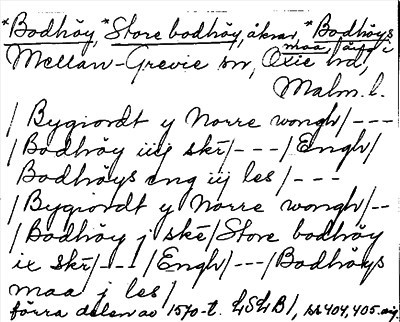 *Bodhöy, *Store bodhöy, åkrar, *Bodhöys
maa, äng i
Mellan-Grevie sn, Oxie hd,
Malm. l.
/ Bygiordt y Norre wongh/---
/ Bodhöy iiij skt/---/Engh/
Bodhöys eng ij les/---
/ Bygiordt y Norre wongh/--
/ Bodhöy j skt/Store bodhöy
ix skt/---/Engh/---/Bodhöys
maa j les/
förra delen av 1570-t. LSLB1, ss 404, 405.